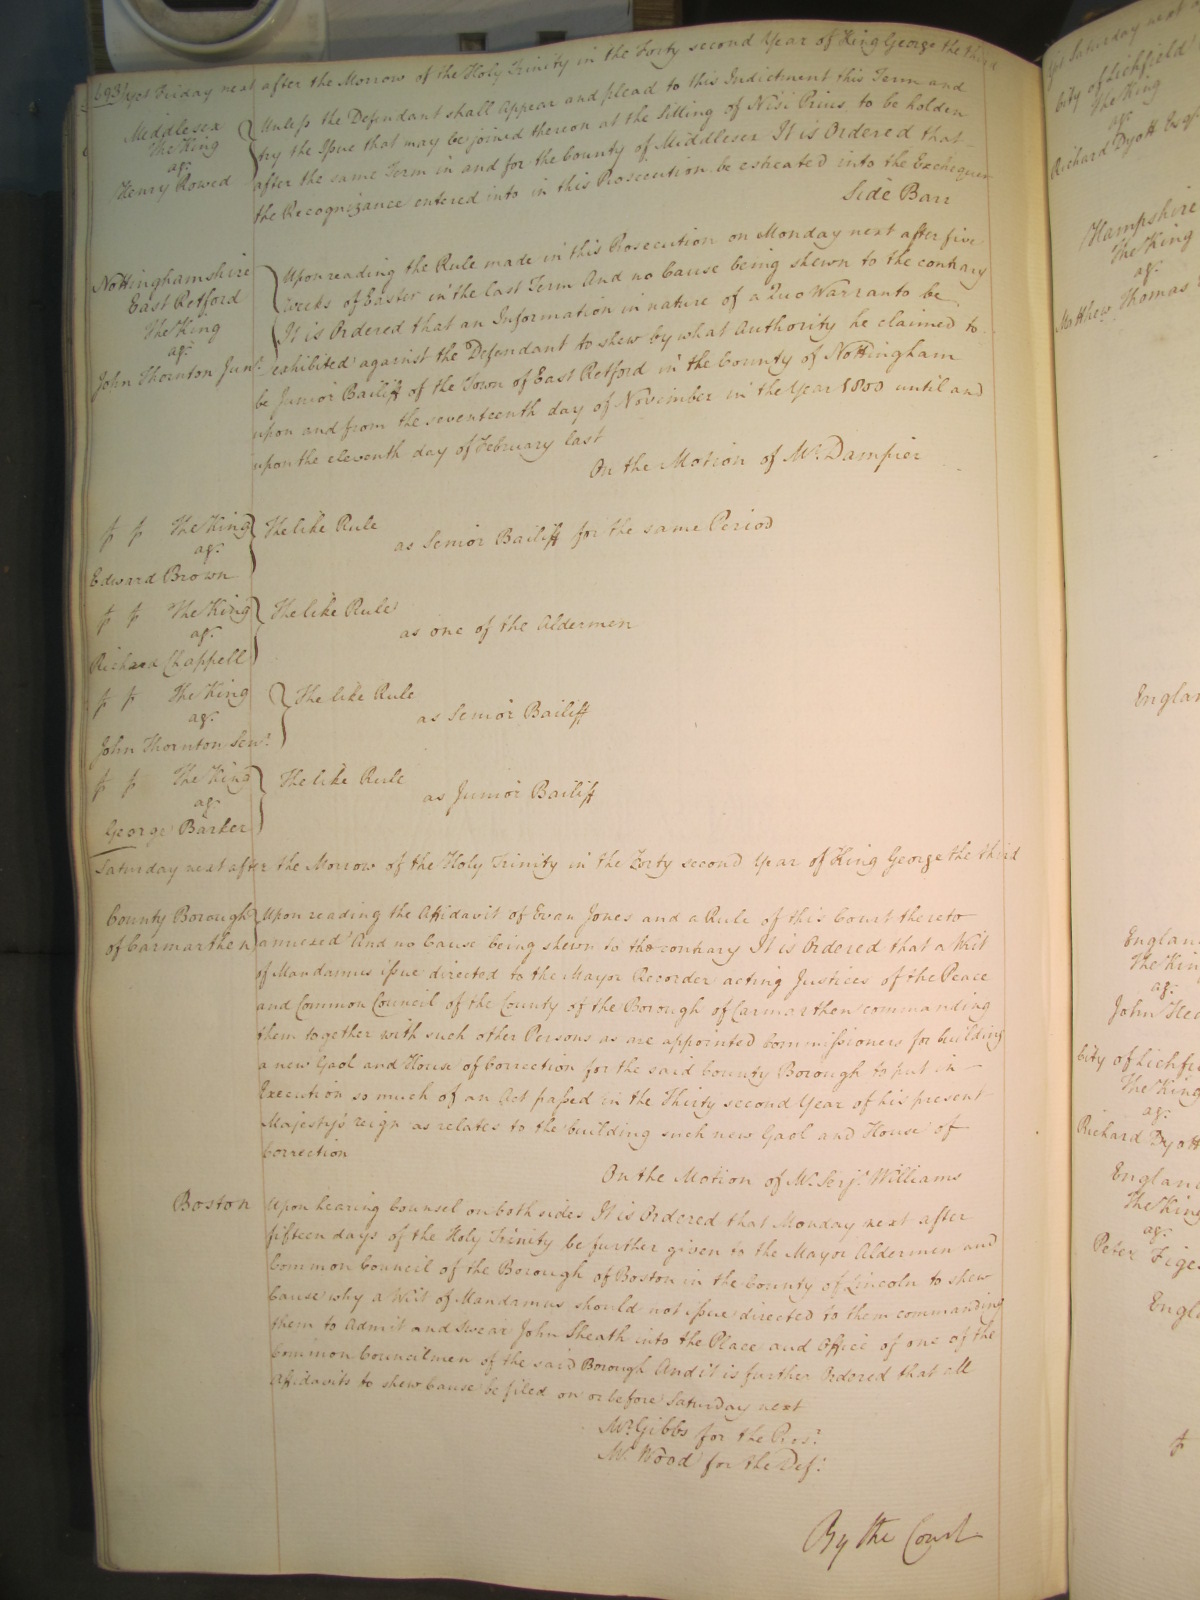 1693 yet Friday next after the Morrow of the Holy Trinity in the Forty second Year of King George the third
Middlesex
The King
agt
Henry Rowed
Unless the Defendant shall Appear and plead to this Indictment this Term and
try the Issue that may be joined thereon at the Sitting of Nisi Prius to be holden
after the same Term in and for the County of Middlesex It is Ordered that
the Recognizance entered into in this Prosecution be estreated into the Exchequer
Side Barr
Nottinghamshire
East Retford
The King
agt
John Thornton Junr
Upon reading the Rule made in this Prosecution on Monday next after five
weeks of Easter in the last Term And no Cause being shewn to the contrary
It is Ordered that an Information in nature of a Quo Warranto be
exhibited against the Defendant to shew by what Authority he claimed to
be Junior Bailiff of the Town of East Retford in the County of Nottingham
upon and from the seventeenth day of November in the Year 1800 until and
upon the eleventh day of February last
On the Motion of Mr. Dampier
The King
agt
Edward Brown
The like Rule
as Senior Bailiff for the same Period
The King
agt
Richard Chappell
The like Rule
as one of the Aldermen
The King
agt
John Thornton Senr
The like Rule
as Senior Bailiff
The King
agt
George Barker
The like Rule
as Junior Bailiff
Saturday next after the Morrow of the Holy Trinity in the Forty second Year of King George the third
County Borough
of Carmarthen
Upon reading the Affidavit of Evan Jones and a Rule of this Court thereto
annexed And no Cause being shewn to the contrary It is Ordered that a Writ
of Mandamus issue directed to the Mayor Recorder acting Justices of the Peace
and Common Council of the County of the Borough of Carmarthen commanding
them together with such other Persons as are appointed Commissioners for building
a new Gaol and House of Correction for the said County Borough to put in
Execution so much of an Act passed in the Thirty second Year of his present
Majesty's reign as relates to the building such new Gaol and House of
Correction
On the Motion of Mr. Serjt Williams
Boston
Upon hearing Counsel on both sides It is Ordered that Monday next after
fifteen days of the Holy Trinity be further given to the Mayor Aldermen and
Common Council of the Borough of Boston in the County of Lincoln to shew
Cause why a Writ of Mandamus should not issue directed to them commanding
them to Admit and Swear John Sheath into the Place and Office of one of the
Common Councilmen of the said Borough And it is further Ordered that all
Affidavits to shew Cause be filed on or before Saturday next
Mr. Gibbs for the Prosr
Mr. Wood for the Deft
By the Court
yet Saturday next
City of Lichfield
The King
agt
Richard Dyott Esqr
Hampshire
The King
agt
Matthew Thomas
England
The King
agt
City of Lichfi
The King
agt
Richard Dyott
England
The King
agt
Peter